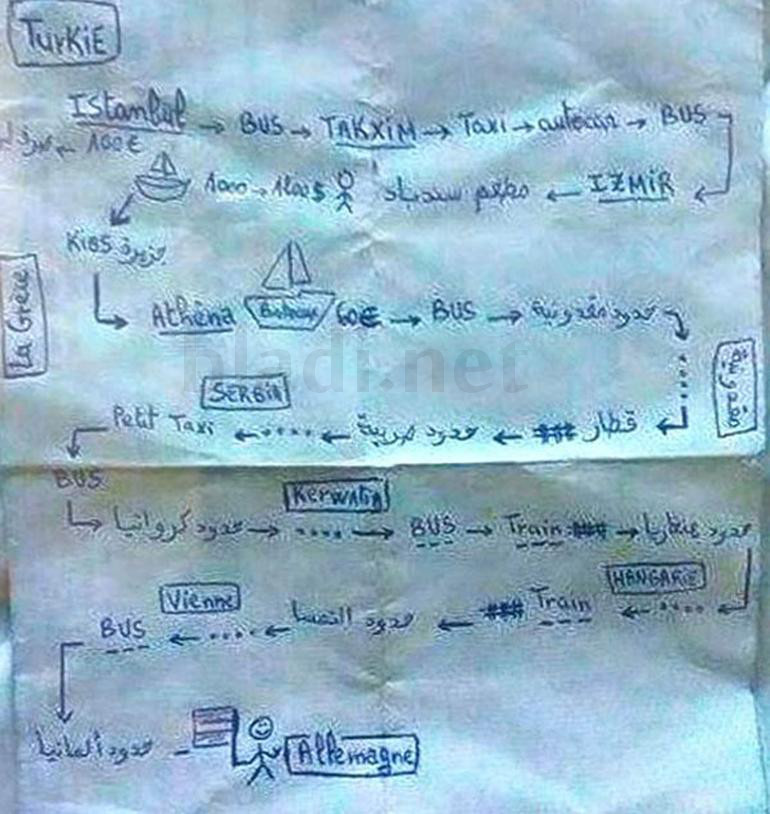 TURKIE
Istanbul → BUS → TAKXIM → Taxi → autocar → BUS
100€
IZMIR ← مطعم سندباد 1000 → 1200$
Kios جزيرة
La Grèce
Athéna 60€ → BUS → حدود مقدونية
مقدونية
قطار ### ← حدود صربية ← .... ← Petit Taxi
SERBIA
BUS
حدود كرواتيا → .... → BUS → Train ### → حدود هنغاريا
KERWATIA
HANGARIE
.... ← Train ### ← حدود النمسا ← .... ← BUS
Vienne
حدود ألمانيا
Allemagne
bladi.net